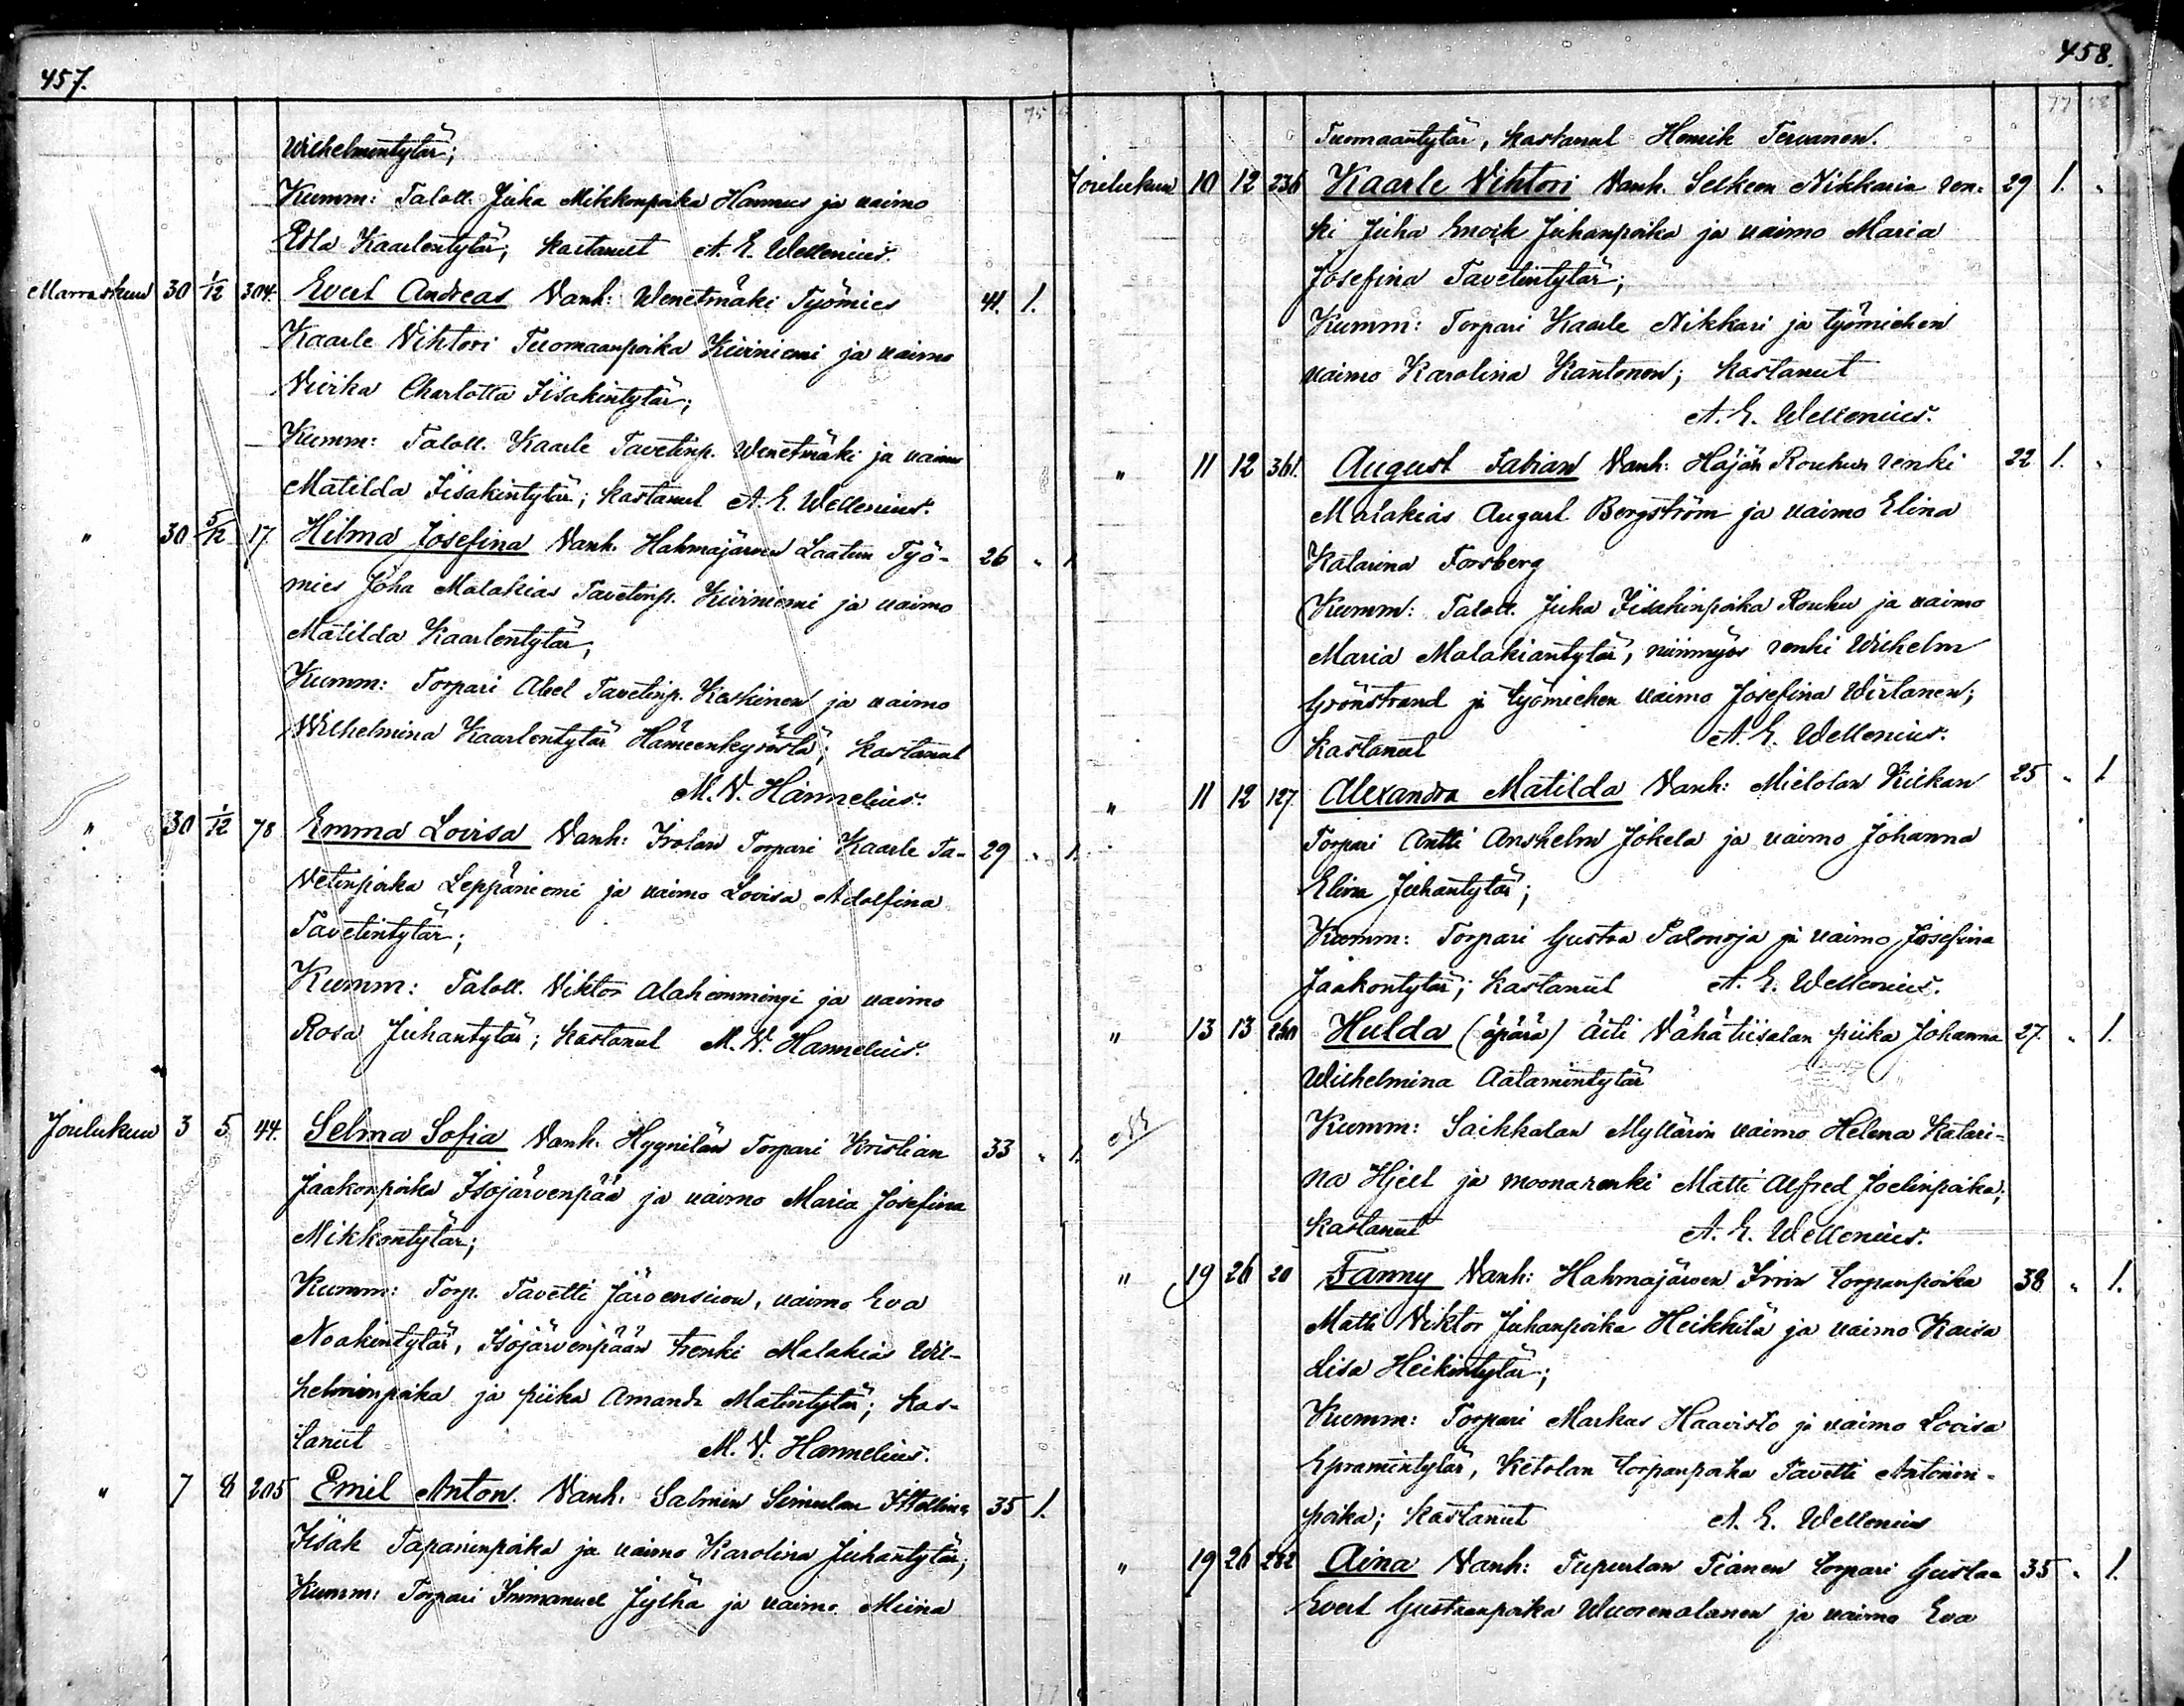 457.
Wilhelmintytär;
Kumm: Taloll. Juha Mikkonpoika Hannus ja vaimo
Kaarlentytär; kastanut A. E. Wellenius.
Marraskuu 30 1/12 304. Evert Andreas Vanh: Wenetmäki Työmies 41. 1.
Kaarle Vihtori Tuomaanpoika Kiviniemi ja vaimo
Charlotta Iisakintytär;
Kumm: Taloll. Kaarle Tavetinp. Wenetmäki ja vaimo
Matilda Iisakintytär; kastanut A. E. Wellenius.
" 30 5/12 17. Hilma Josefina Vanh. Hahmajärven Laatun Työ- 26 " 1
mies Joha Malakias Tavetinp. Kiviniemi ja vaimo
Matilda Kaarlentytär,
Kumm: Torpari Abel Tavetinp. Koskinen ja vaimo
Wilhelmina Kaarlentytär Hämeenkyröstä; kastanut
M. V. Hannelius.
" 30 1/12 78 Emma Lovisa Vanh: Irolan Torpari Kaarle Ta- 29 " 1.
vetinpoika Leppäniemi ja vaimo Lovisa Adolfina
Tavetintytär;
Kumm: Taloll. Viktor Alahemmingi ja vaimo
Rosa Juhantytär; kastanut M. V. Hannelius.
Joulukuu 3 5 44. Selma Sofia Vanh. Hyynilän Torpari Kristian 33 " 1.
Jaakonpoika Isojärvenpää ja vaimo Maria Josefina
Mikkontytär;
Kumm: Torp. Tavetti Järvensivu, vaimo Eva
Noakintytär, Isojärvenpään renki Malakias Wil-
helminpoika ja piika Amanda Matintytär; kas-
tanut M. V. Hannelius.
" 7 8 205 Emil Anton. Vanh: Salmin Simulan Itsellinen 35 1.
Iisak Tapaninpoika ja vaimo Karolina Juhantytär;
Kumm: Torpari Immanuel Jylhä ja vaimo Miina
458.
Tuomaantytär, kastanut Henrik Tervanen.
Joulukuu 10 12 236 Kaarle Vihtori Vanh. Selkeen Nikkarin ren- 29 1. "
ki Juha Enok Juhanpoika ja vaimo Maria
Josefina Tavetintytär;
Kumm: Torpari Kaarle Nikkari ja työmiehen
vaimo Karolina Kantonen; kastanut
A. E. Wellenius.
" 11 12 361. August Fabian Vanh: Hajan Rouhun renki 22 1. "
Malakias August Bergström ja vaimo Elina
Katarina Forsberg
Kumm: Taloll. Juha Iisakinpoika Rouhu ja vaimo
Maria Malakiantytär, niinmyös renki Wilhelm
Grönstrand ja työmiehen vaimo Josefina Wirtanen;
kastanut A. E. Wellenius.
" 11 12 127. Alexandra Matilda Vanh: Mietolan Kiikan 25 " 1
Torpari Antti Anshelm Jokela ja vaimo Johanna
Elina Juhantytär;
Kumm: Torpari Gustaa Palonoja ja vaimo Josefina
Jaakontytär; kastanut A. E. Wellenius.
" 13 13 Hulda (äpärä) äiti Vähätiisalan piika Johanna 27. " 1.
Wilhelmina Aatamintytär
Kumm: Saikkalan Myllärin vaimo Helena Katari-
na Hjelt ja moonarenki Matti Alfred Joelinpoika;
kastanut A. E. Wellenius.
" 19 26 20 Fanny Vanh: Hahmajärven Irrin torpanpoika 38 " 1.
Matti Viktor Juhanpoika Heikkilä ja vaimo Kaisa
Lisa Heikintytär;
Kumm: Torpari Markus Haavisto ja vaimo Lovisa
Epramintytär, Ketolan torpanpoika Tavetti Antonin-
poika; kastanut A. E. Wellenius
" 19 26 282 Aina Vanh: Tupurlan Tianen torpari Gustaa 35 " 1.
Evert Gustaanpoika Wuorenalanen ja vaimo Eva